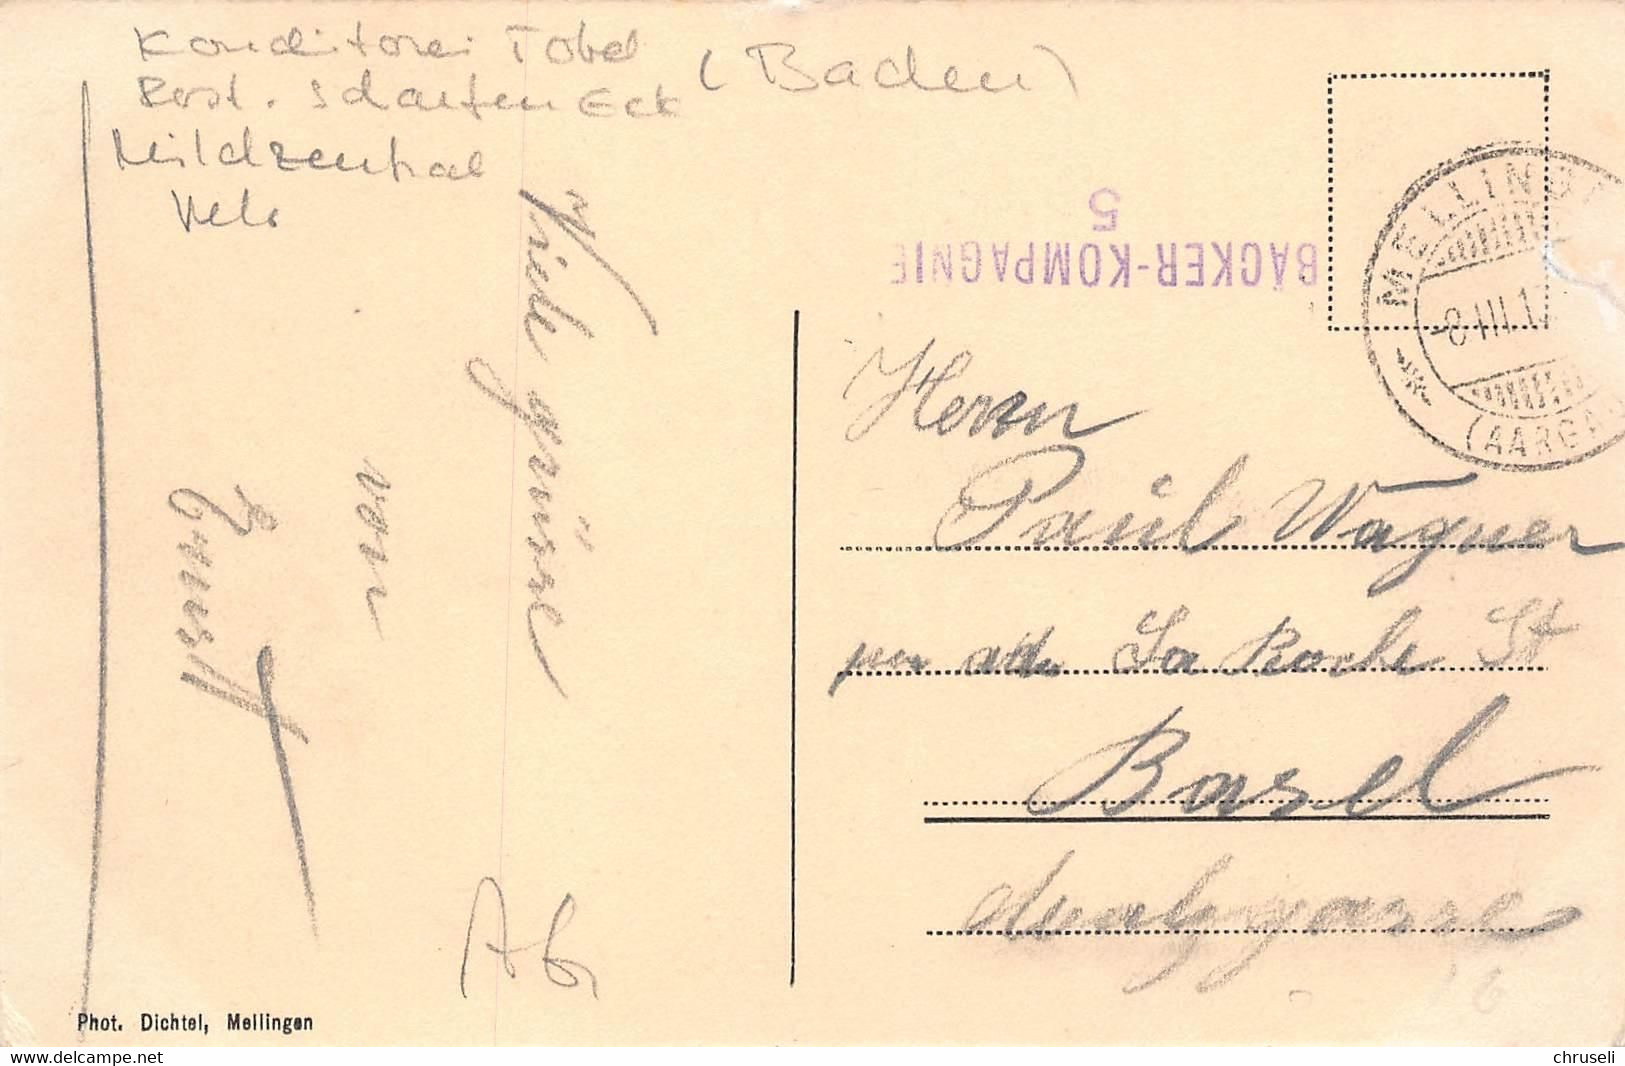 Konditorei Tobel
(Baden)
Rest. Scharten Eck
Milchzentral
Velo
Viele grüsse
von
Ernst
BÄCKER-KOMPAGNIE
5
MELLINGE
-8.III.1
(AARGA
Herrn
Paul Wagner
La Roche St
Basel
gasse
Phot. Dichtel, Mellingen
www.delcampe.net
chruseli